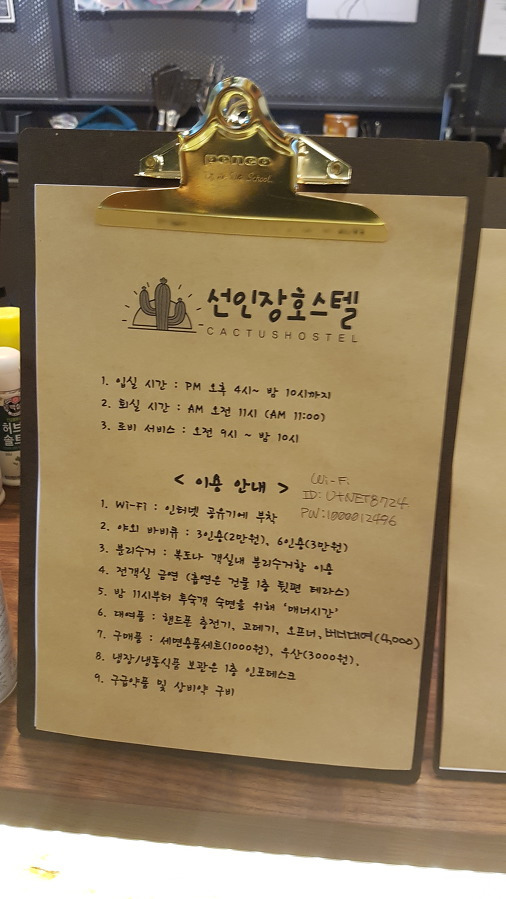 penco
선인장호스텔
CACTUSHOSTEL
1. 입실 시간 : PM 오후 4시~ 밤 10시까지
2. 퇴실 시간 : AM 오전 11시 (AM 11:00)
3. 로비 서비스 : 오전 9시 ~ 밤 10시
< 이용 안내 >
Wi-Fi
ID: U+NET8724
PW: 1000012496
1. Wi-Fi : 인터넷 공유기에 부착
2. 야외 바비큐 : 3인용(2만원), 6인용(3만원)
3. 분리수거 : 복도나 객실내 분리수거함 이용
4. 전객실 금연 (흡연은 건물 1층 뒷편 테라스)
5. 밤 11시부터 투숙객 숙면을 위해 '매너시간'
6. 대여품 : 핸드폰 충전기, 고데기, 오프너, 버너대여(4,000)
7. 구매품 : 세면용품세트(1000원), 우산(3000원),
8. 냉장/냉동식품 보관은 1층 인포데스크
9. 구급약품 및 상비약 구비
허브
솔트